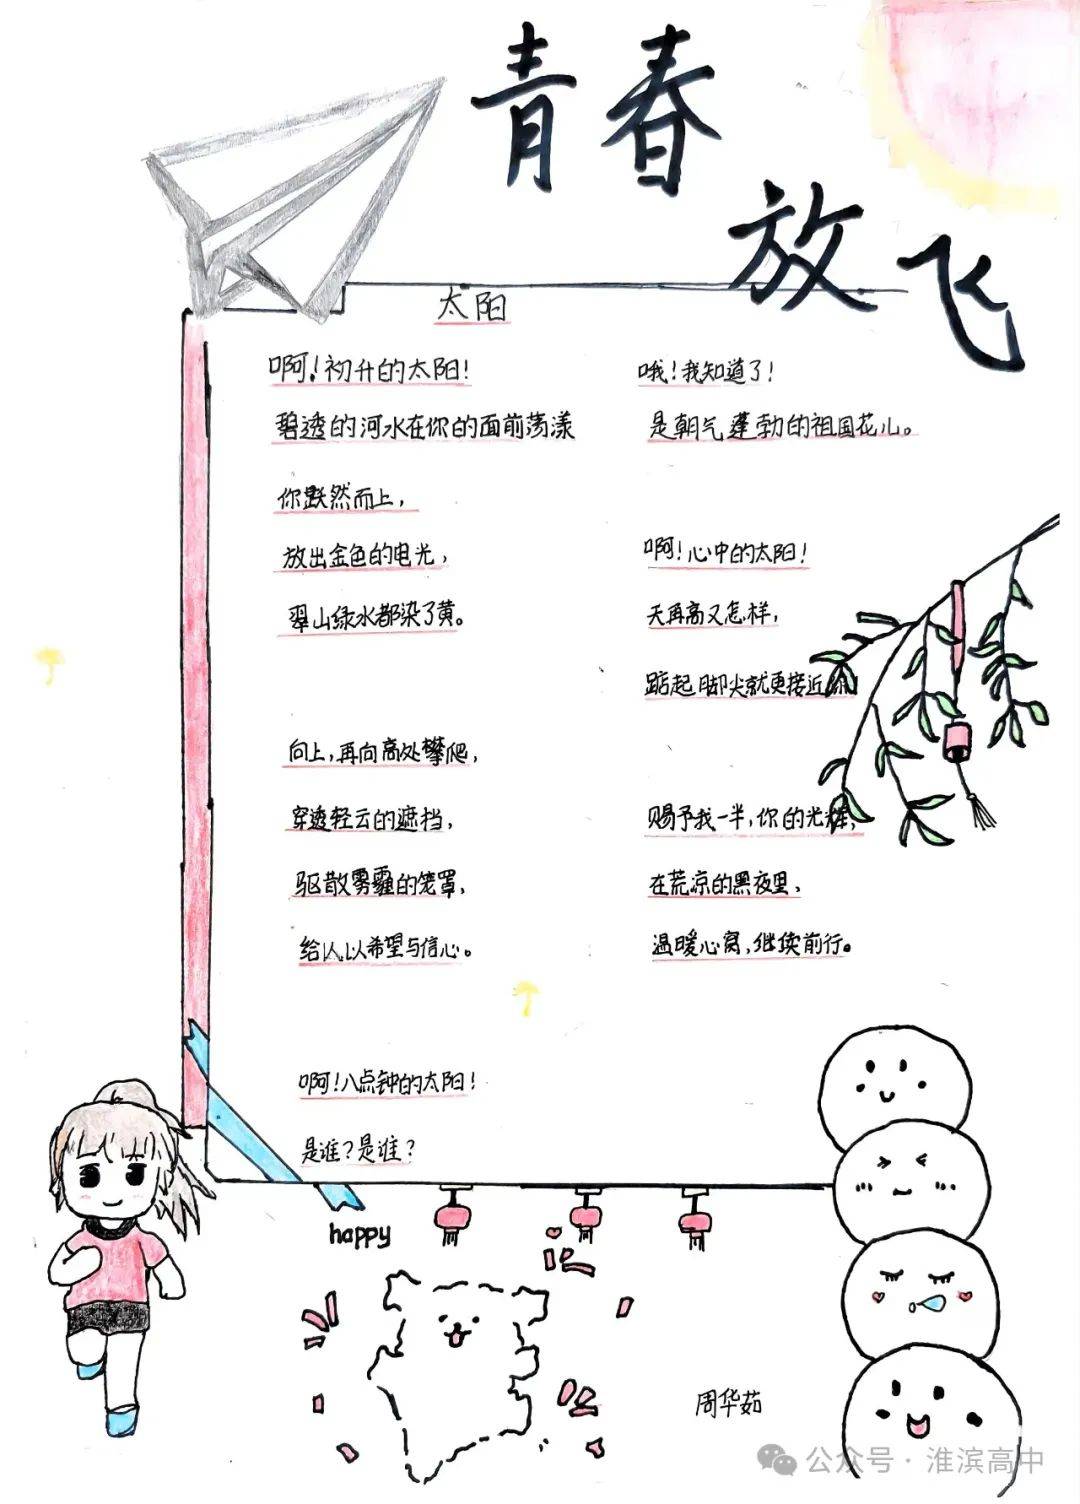 青春
放飞
太阳
啊！初升的太阳！
碧透的河水在你的面前荡漾
你默然而上，
放出金色的电光，
翠山绿水都染了黄。
向上，再向高处攀爬，
穿透轻云的遮挡，
驱散雾霾的笼罩，
给人以希望与信心。
啊！八点钟的太阳！
是谁？是谁？
哦！我知道了！
是朝气蓬勃的祖国花儿。
啊！心中的太阳！
天再高又怎样，
踮起脚尖就更接近你
赐予我一半，你的光辉，
在荒凉的黑夜里，
温暖心窝，继续前行。
happy
周华茹
公众号·淮滨高中